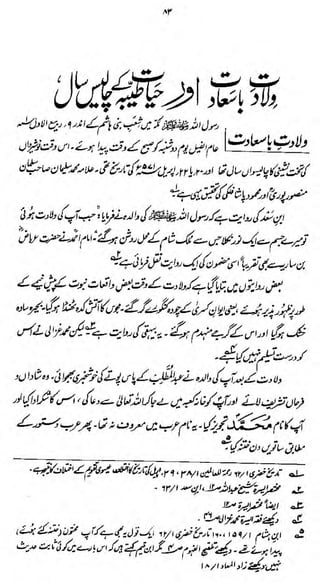 ۸۳
ولادت باسعادت اور حیات طیبہ کے چالیس سال
ولادت باسعادت
رسول اللہ ﷺ مکہ میں شعب بنی ہاشم کے اندر ۹ ربیع الاول سنہ ۱
عام الفیل یوم دوشنبہ کو صبح کے وقت پیدا ہوئے۔ اس وقت نوشیرواں
کی تخت نشینی کا چالیسواں سال تھا اور ۲۰ یا ۲۲ اپریل ۵۷۱ء کی تاریخ تھی۔ علامہ محمد سلیمان صاحب سلمان
منصورپوری اور محمود پاشا فلکی کی تحقیق یہی ہے۔
ابن سعد کی روایت ہے کہ رسول اللہ ﷺ کی والدہ نے فرمایا: جب آپ کی ولادت ہوئی
تو میرے جسم سے ایک نور نکلا جس سے ملک شام کے محل روشن ہو گئے۔ امام احمد نے حضرت عرباض
بن ساریہ سے بھی تقریباً اسی مضمون کی ایک روایت نقل فرمائی ہے۔
بعض روایتوں میں بتایا گیا ہے کہ ولادت کے وقت بعض واقعات نبوت کے پیش خیمے کے
طور پر ظہور پذیر ہوئے، یعنی ایوان کسریٰ کے چودہ کنگورے گر گئے۔ مجوس کا آتش کدہ ٹھنڈا ہو گیا۔ بحیرہ ساوہ
خشک ہو گیا اور اس کے گرجے منہدم ہو گئے۔ یہ بیہقی کی روایت ہے لیکن محمد غزالی نے اس کو
درست تسلیم نہیں کیا ہے۔
ولادت کے بعد آپ کی والدہ نے عبدالمطلب کے پاس پوتے کی خوشخبری بھجوائی۔ وہ شاداں و
فرحاں تشریف لائے اور آپ کو خانہ کعبہ میں لے جا کر اللہ تعالیٰ سے دعا کی، اس کا شکر ادا کیا اور
آپ کا نام محمد تجویز کیا۔ یہ نام عرب میں معروف نہ تھا۔ پھر عرب دستور کے
مطابق ساتویں دن ختنہ کیا۔
۱ تاریخ خضری ۱/۶۲ رحمۃ للعالمین ۱/۳۸، ۳۹، اپریل کی تاریخ کا اختلاف عیسوی تقویم کے اختلاف کا نتیجہ ہے۔
۲ مختصر السیرۃ شیخ عبداللہ ص ۱۲، ابن سعد ۱/۶۳
۳ ایضاً مختصر السیرۃ ص ۱۲
۴ دیکھئے فقہ السیرۃ محمد غزالی ص ۴۶
۵ ابن ہشام ۱/۱۵۹، ۱۶۰ تاریخ خضری ۱/۶۲ ایک قول یہ بھی ہے کہ آپ مختون (ختنہ کئے ہوئے)
پیدا ہوئے تھے۔ دیکھئے تلقیح الفہوم ص ۴ مگر ابن قیم کہتے ہیں کہ اس بارے میں کوئی ثابت حدیث
نہیں دیکھئے زاد المعاد ۱/۱۸